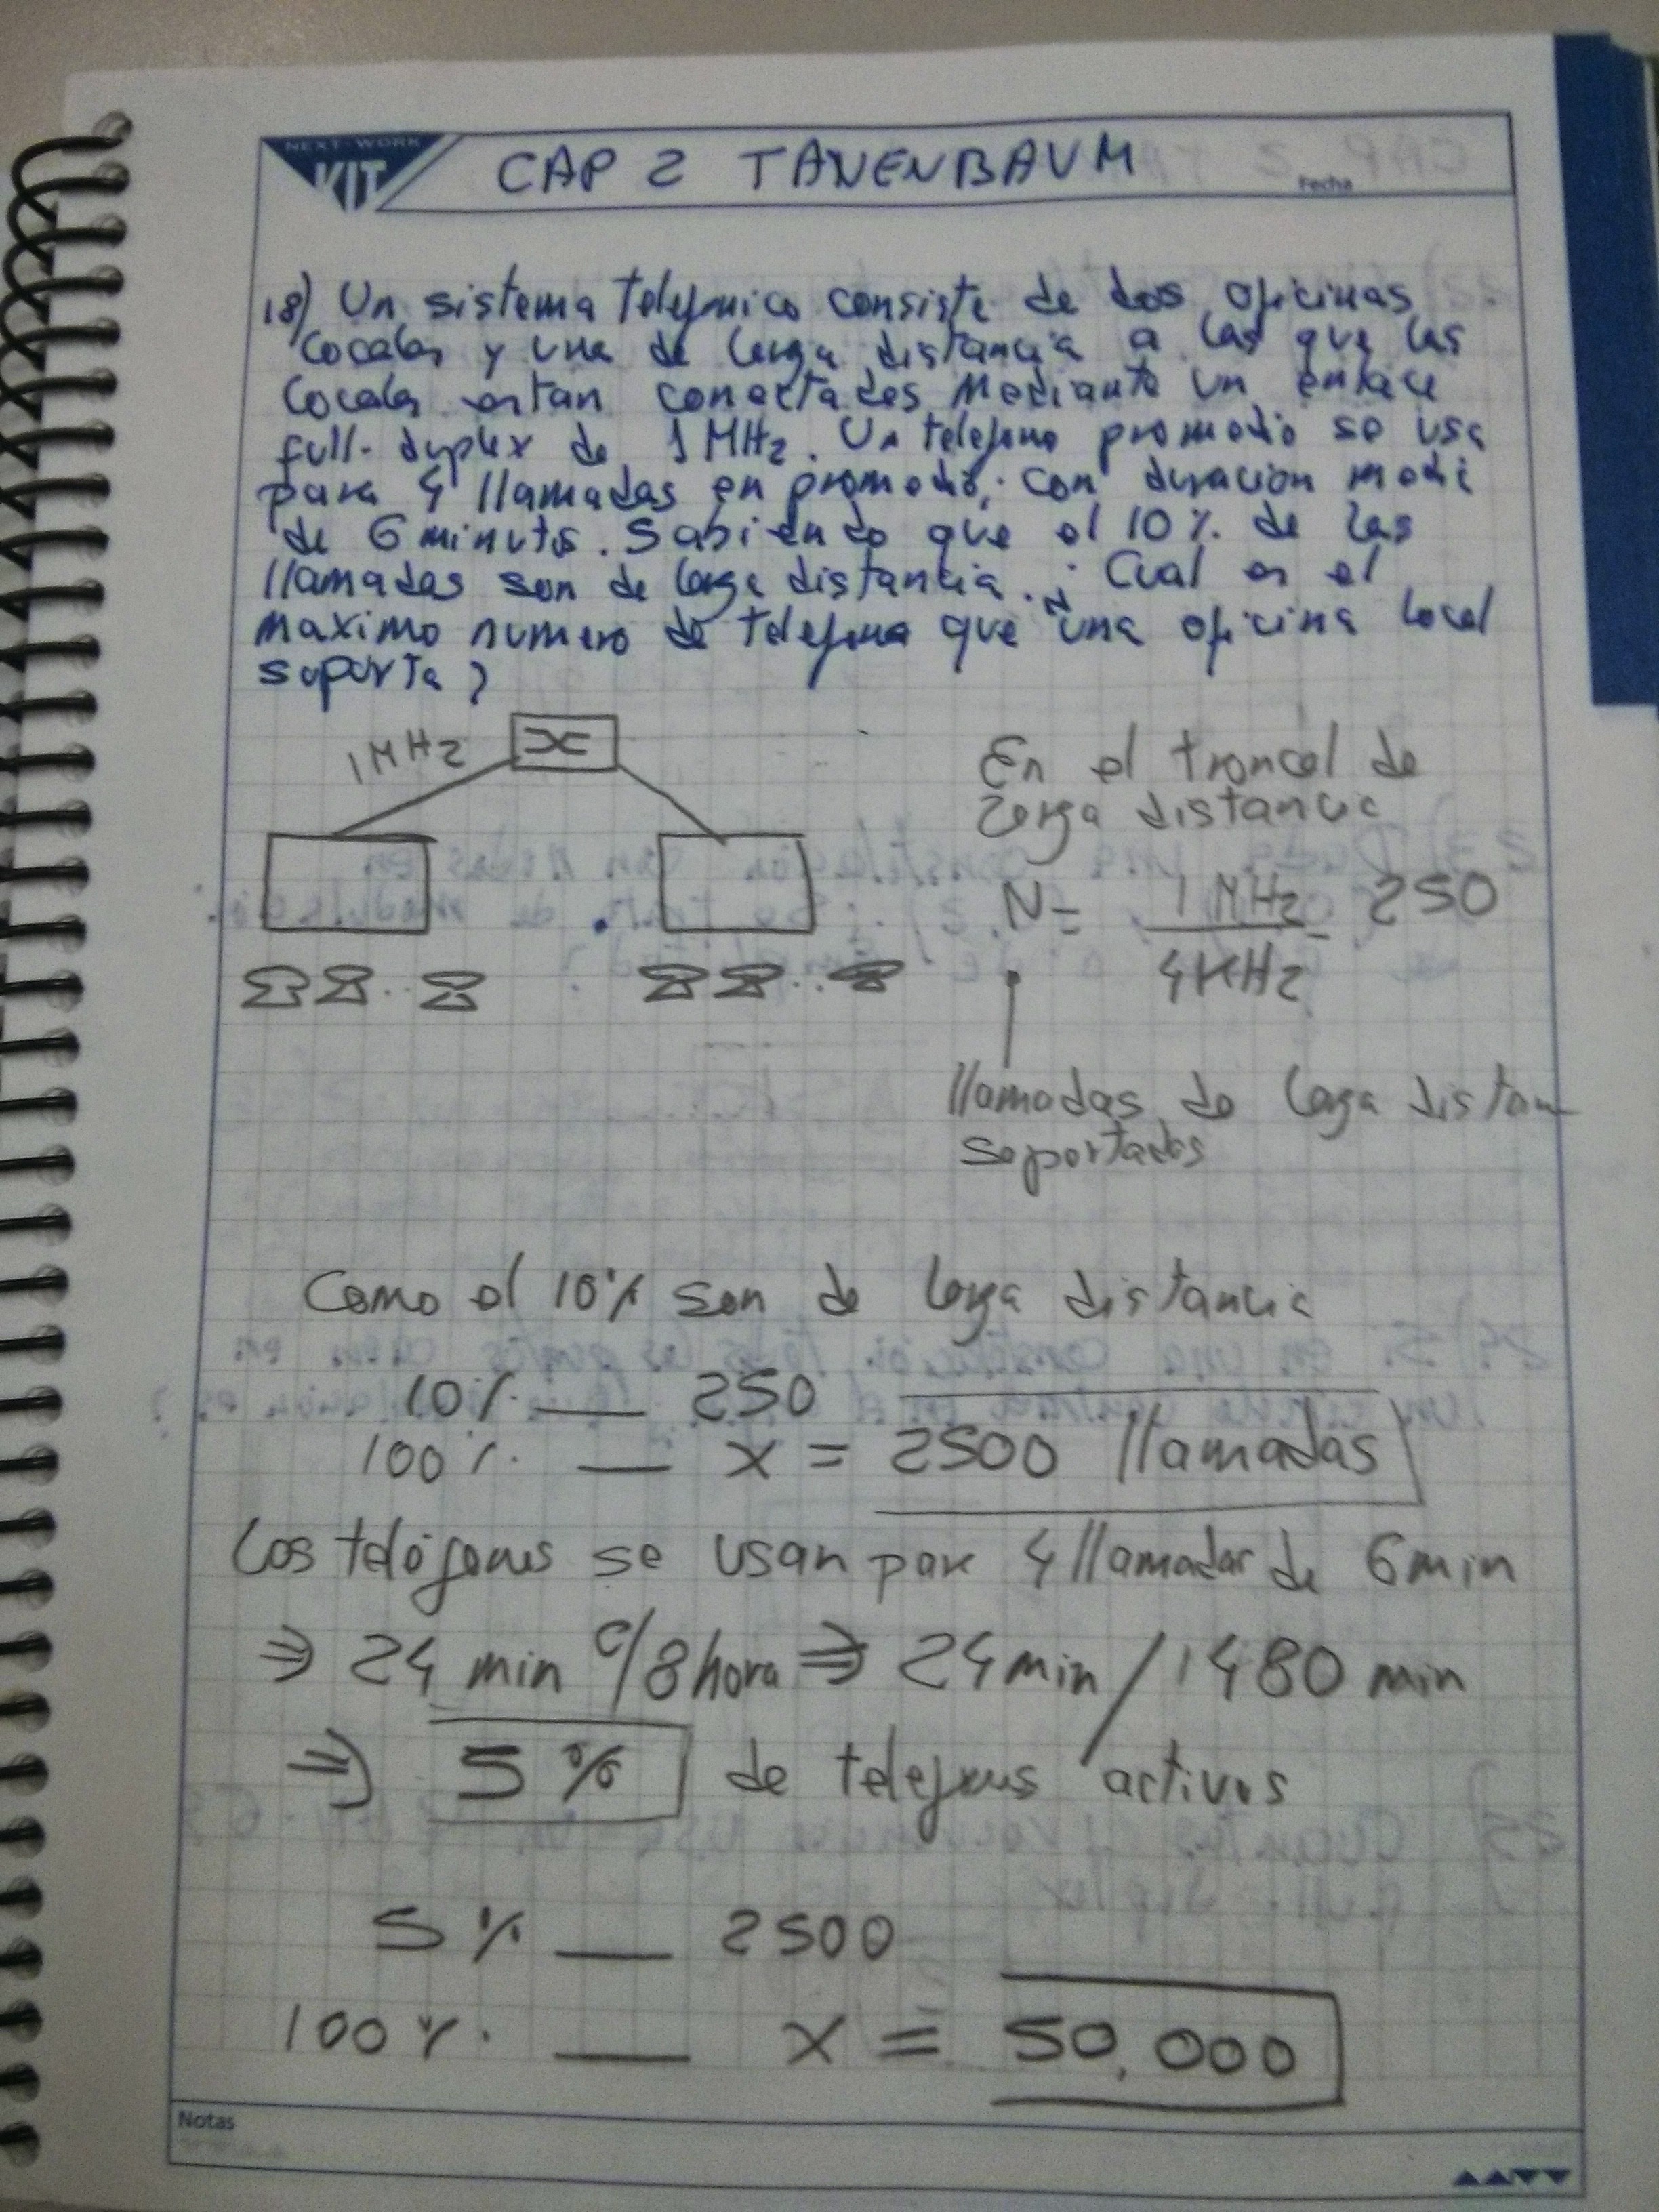 NEXT-WORK
KIT
CAP 2 TANENBAUM
Fecha
18) Un sistema telefonico consiste de dos oficinas
locales y una de larga distancia a las que las
locales estan conectades mediante un enlace
full-duplex de 1 MHz. Un telefono promedio se usa
para 4 llamadas en promedio, con duracion medi
de 6 minutos. Sabiendo que el 10%. de las
llamadas son de larga distancia. ¿ Cual es el
maximo numero de telefono que una oficina local
soporta?
1MHz
En el troncal de
larga distancia
N= 1 MHz = 250
4KHz
llamadas de larga distan
soportadas
Como el 10% son de larga distancia
10%. __ 250
100%. __ x = 2500 llamadas
Los teléfonos se usan para 4 llamadas de 6 min
⇒ 24 min c/8hora ⇒ 24min / 1480 min
⇒ 5% de telefonos activos
5% __ 2500
100%. __ x = 50.000
Notas